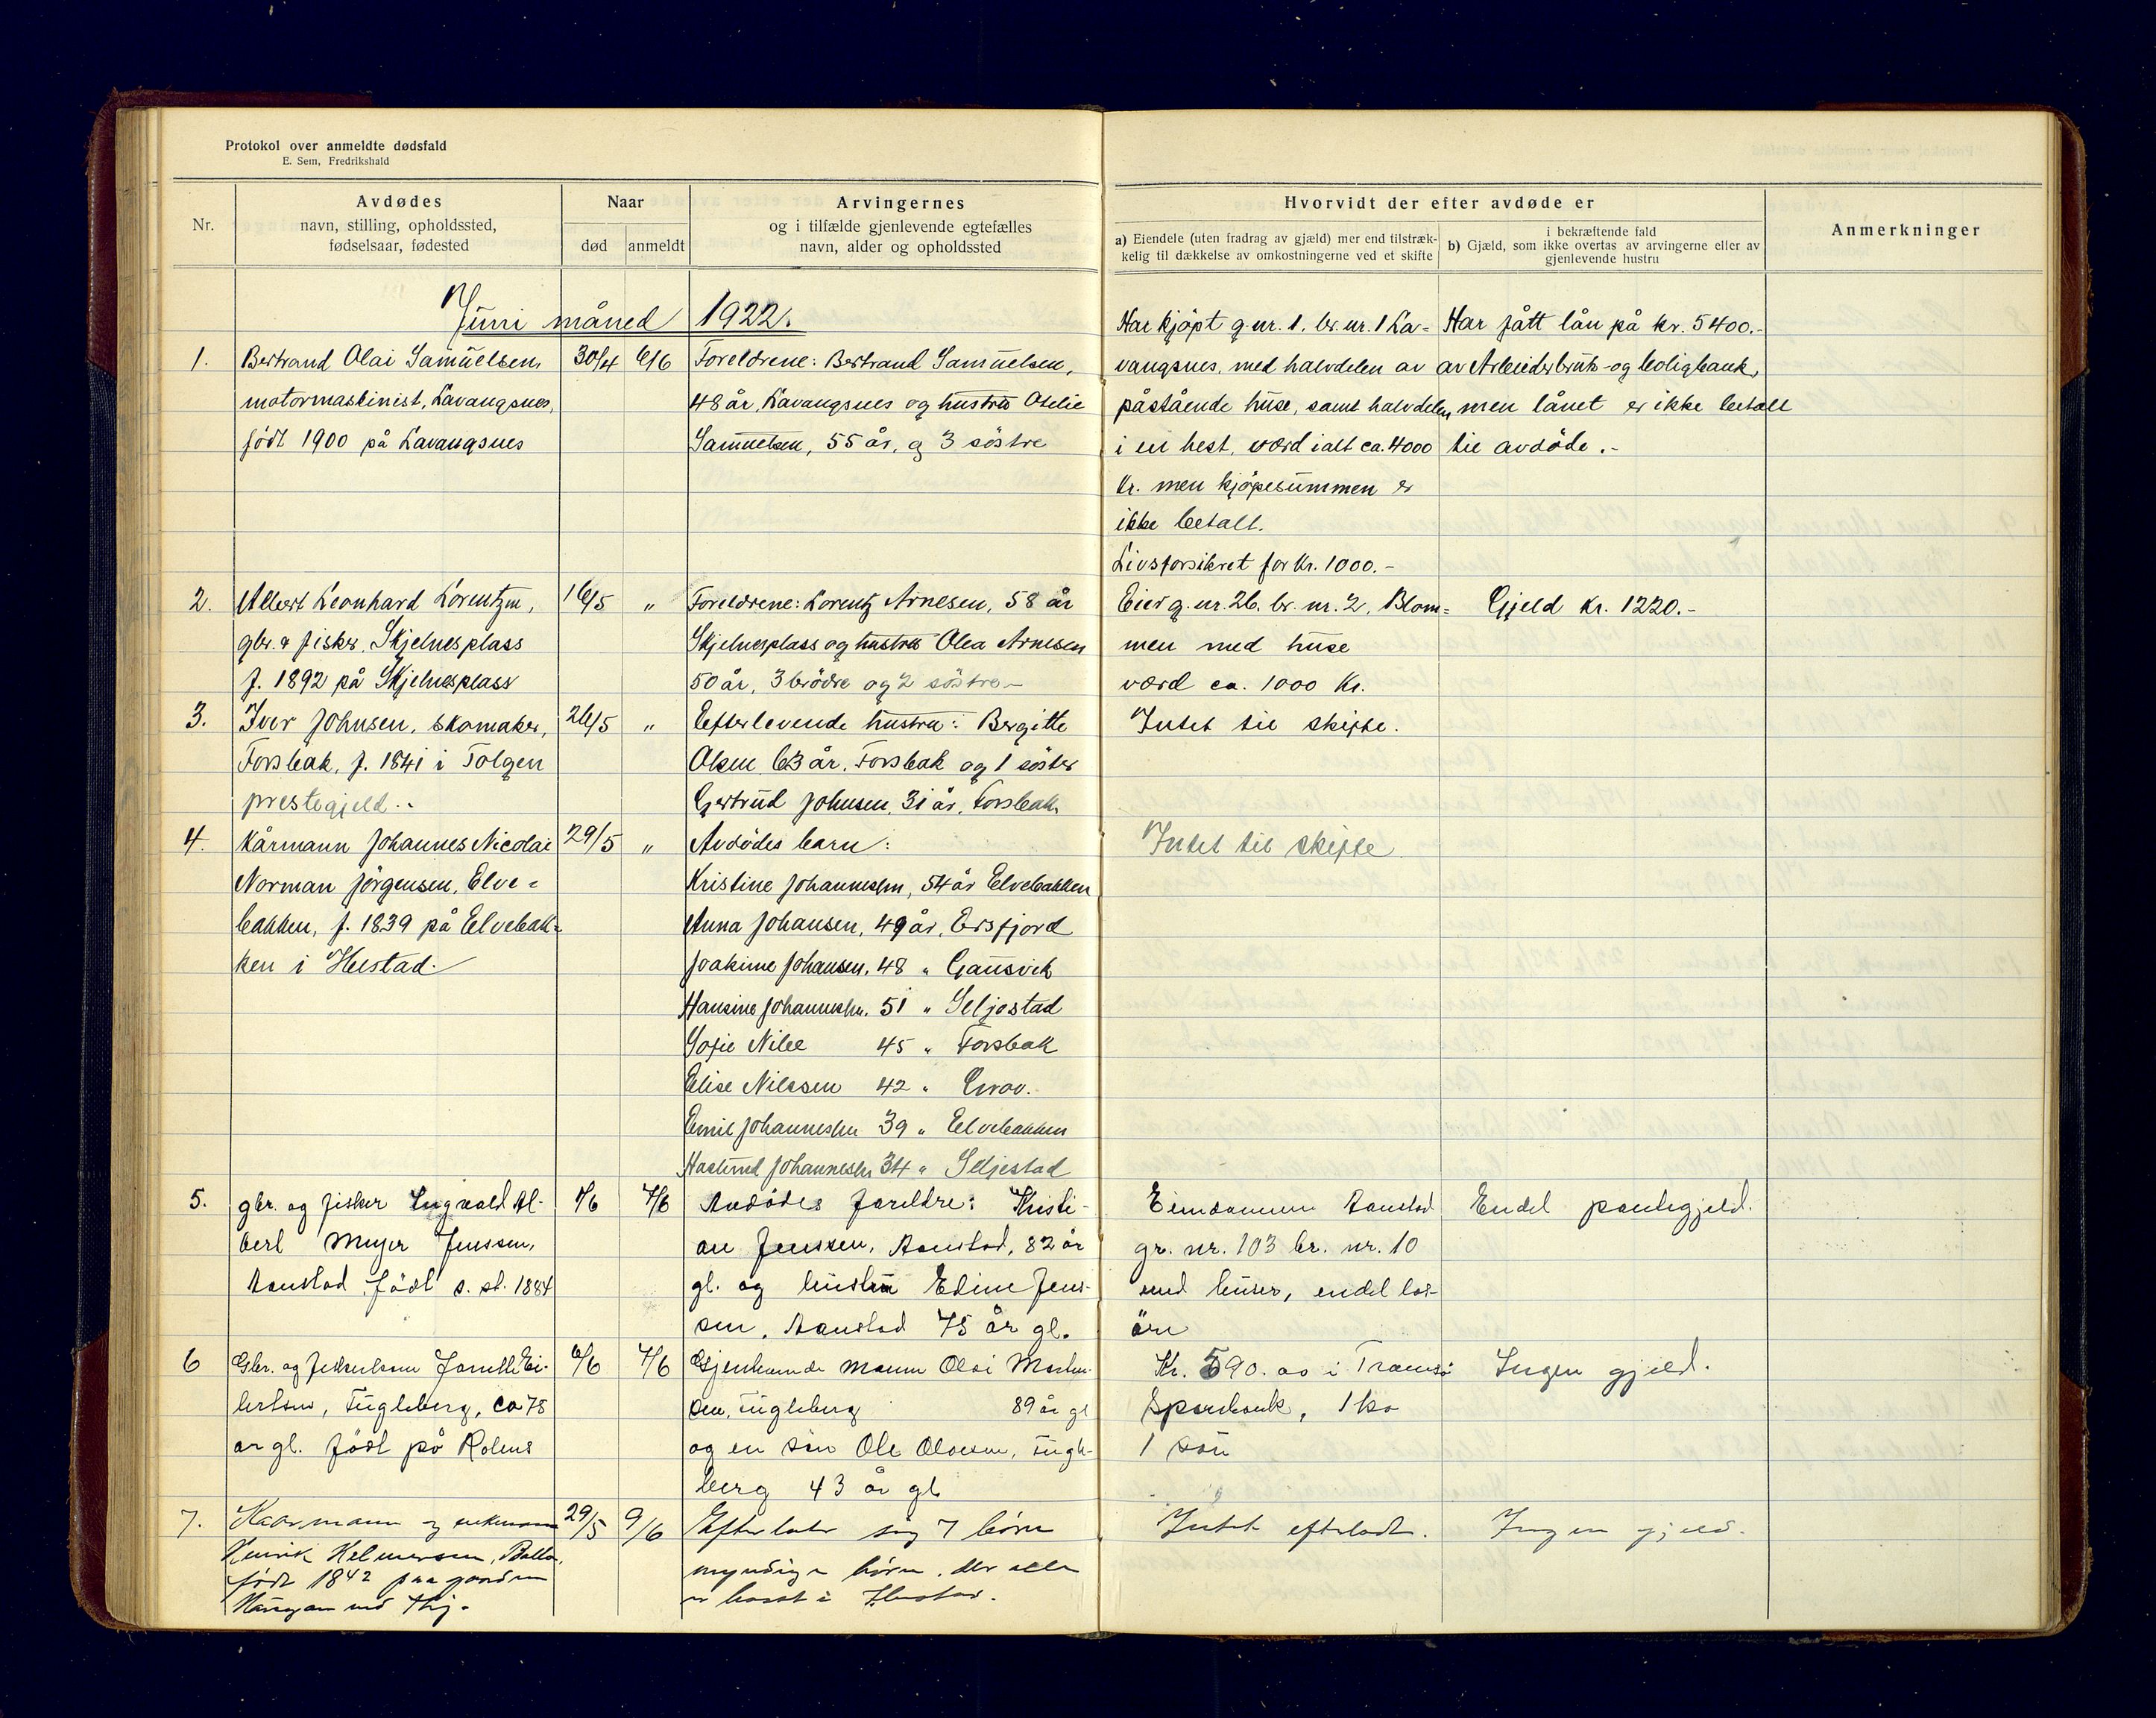 Protokol over anmeldte dødsfald
E. Sem, Fredrikshald
Nr.
Avdødes
navn, stilling, opholdssted,
fødselsaar, fødested
Naar
død
anmeldt
Arvingernes
og i tilfælde gjenlevende egtefælles
navn, alder og opholdssted
Hvorvidt der efter avdøde er
a) Eiendele (uten fradrag av gjæld) mer end tilstræk-
kelig til dækkelse av omkostningerne ved et skifte
i bekræftende fald
b) Gjæld, som ikke overtas av arvingerne eller av
gjenlevende hustru
Anmerkninger
Juni måned 1922.
1.
Bertrand Olai Samuelsen,
motormaskinist, Lavangsnes,
født 1900 på Lavangsnes
30/4
6/6
Foreldrene: Bertrand Samuelsen,
48 år, Lavangsnes og hustru Otelie
Samuelsen, 55 år, og 3 söstre
Har kjöpt g.nr. 1. br.nr. 1 La=
vangsnes, med halvdelen av
påstående huse, samt halvdelen
i en hest, værd ialt ca. 4000
Kr. men kjöpesummen er
ikke betalt.
Livsforsikret for Kr. 1000.-
Har fått lån på kr. 5400.-
av Arbeiderbruk- og boligbank,
men lånet er ikke betalt
til avdöde.-
2.
Albert Leonhard Lorentzen,
gbr. & fisker, Skjelnesplass
f. 1892 på Skjelnesplass
16/5
"
Foreldrene: Lorentz Arnesen, 58 år
Skjelnesplass og hustru Olea Arnesen
50 år, 3 brödre og 2 söstre-
Eier g.nr. 26. br. nr. 2, Blom=
men med huse
værd ca. 1000 Kr.
Gjeld Kr. 1220.-
3.
Iver Johnsen, skomaker,
Forsbak, f. 1841 i Tolgen
prestegjeld..
26/5
"
Efterlevende hustru: Bergitte
Olsen 63 år. Forsbak og 1 söster
Gertrud Johnsen, 31 år, Forsbak
Intet til skifte.
4.
Kårmann Johannes Nicolai
Norman Jörgensen, Elve=
bakken, f. 1839 på Elvebak=
ken i Ibestad.
29/5
"
Avdödes barn:
Kristine Johannessen, 54 år Elvebakken
Anna Johansen, 49 år, Ersfjord
Joakime Johansen, 48 " Gausvik
Hansine Johannessen. 51 " Seljestad
Sofie Nilse 45 " Forsbak
Elise Nilssen 42 " Grov.
Emil Johannessen 39 " Elvebakken
Haslund Johannessen 34 " Seljestad
Intet til skifte
5.
gbr. og fisker Ingvald Al-
bert Meyer Jenssen,
Aanstad, födt s. st. 1884
1/6
7/6
Avdödes foreldre: Kristi-
an Jenssen, Aanstad, 82 år
gl. og hustru Edine Jens-
sen, Aanstad 75 år gl.
Eiendommen Aanstad
gr. nr. 103 br. nr. 10
med huser, endel lös-
öre
Endel pantegjeld.
6
Gbr. og Ei-
lertsen, Fugleberg, ca 78
år gl. födt på Rolnes
6/6
7/6
Gjenlevende mann Olai Morten-
sen, Fugleberg 89 år gl
og en sön Ole Olausen, Fugle-
berg 43 år gl
Kr. 590.00 i Tromsö
Sparebank, 1 ko
1 sau
Ingen gjeld.
7.
Kaarmann og enkemann
Henrik Helmersen, Balla,
født 1842 paa gaarden
29/5
9/6
Efterlater sig 7 børn
myndige børn, der alle
er bosat i Ibestad.
Intet efterlatt.
Ingen gjeld.